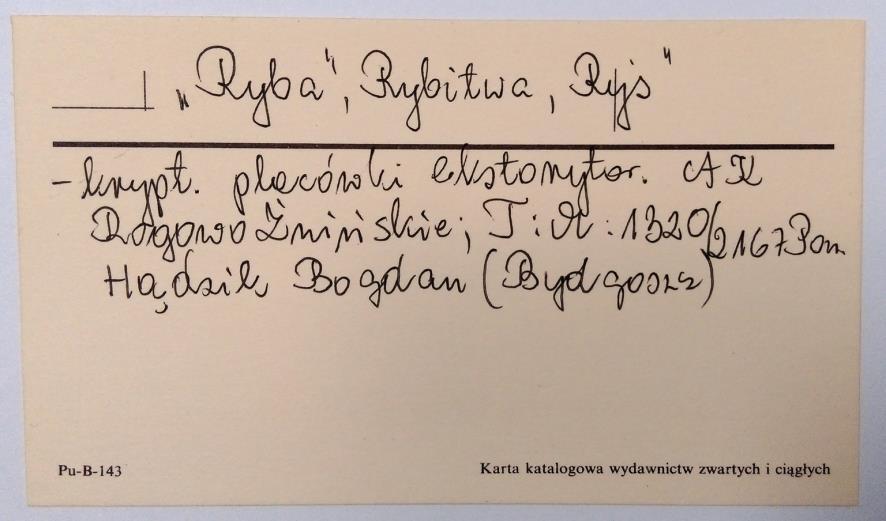 „Ryba", Rybitwa, Ryjs"
- krypt. placówki ekstorytor. AK
Rogowo Żnińskie; T: M: 1320/2167 Pom
Hądzik Bogdan (Bydgoszcz)
Pu-B-143 Karta katalogowa wydawnictw zwartych i ciągłych